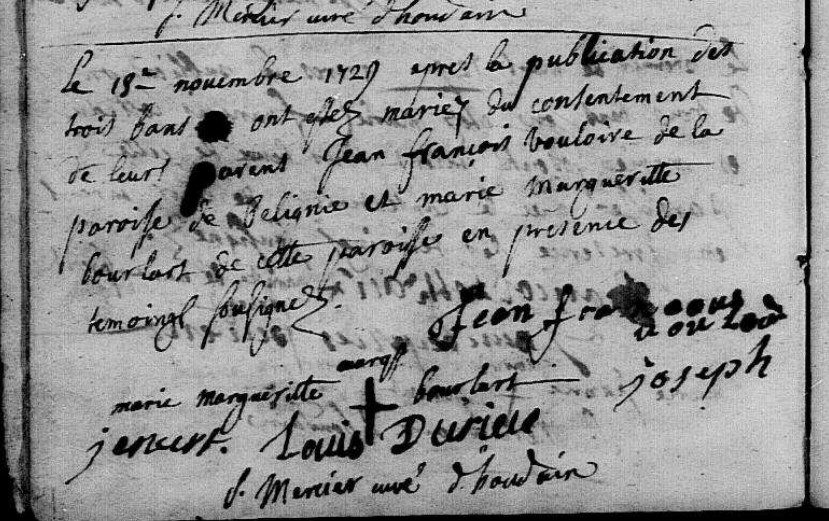 f. Mercier curé d'houdain
Le 15me novembre 1729 apres la publication des
trois bans ont estez mariez du consentement
de leurs parent Jean françois bouloire de la
paroisse de belignie et marie margueritte
bourlart de cette paroisse en presence des
temoings sousignez.
Jean francoous
marie margueritte marqs bourlart joseph
Louis Durieue
f. Mercier curé d'houdain